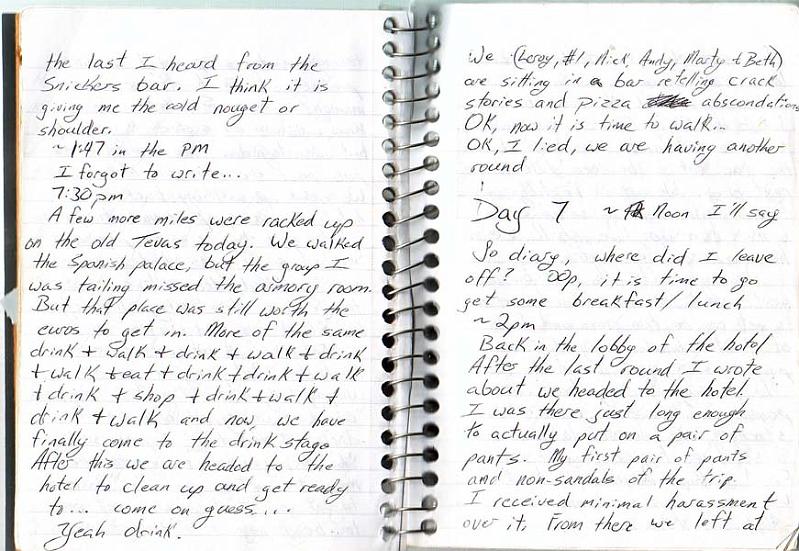 the last I heard from the
Snickers bar. I think it is
giving me the cold nouget or
shoulder.
~ 1:47 in the PM
I forgot to write...
7:30pm
A few more miles were racked up
on the old Tevas today. We walked
the Spanish palace, but the group I
was tailing missed the armory room.
But that place was still worth the
euros to get in. More of the same
drink + walk + drink + walk + drink
+ walk + eat + drink + drink + walk
+ drink + shop + drink + walk +
drink + walk and now, we have
finally come to the drink stage
After this we are headed to the
hotel to clean up and get ready
to... come on guess....
Yeah drink.
We (Leroy, #1, Nick, Andy, Marty + Beth)
are sitting in a bar retelling crack
stories and pizza abscondations
OK, now it is time to walk...
OK, I lied, we are having another
round
Day 7 ~ Noon I'll say
So diary, where did I leave
off? OOp, it is time to go
get some breakfast/lunch
~ 2pm
Back in the lobby of the hotel
After the last round I wrote
about we headed to the hotel.
I was there just long enough
to actually put on a pair of
pants. My first pair of pants
and non-sandals of the trip
I received minimal harassment
over it. From there we left at